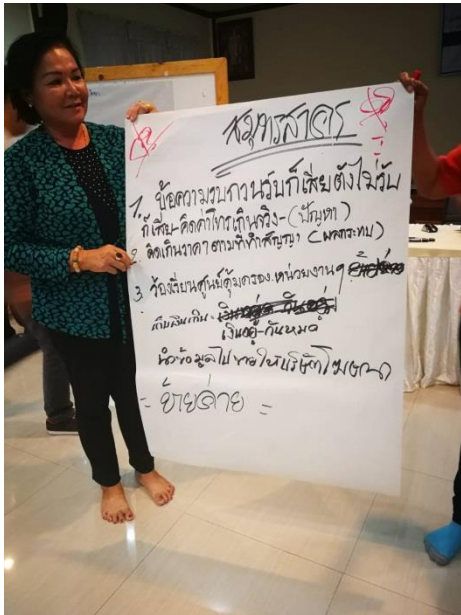 สมุทรสาคร
1. ข้อความรบกวนรับก็เสียตังไม่รับ
ก็เสีย-คิดค่าโทรเกินจริง-(ปัญหา)
2. คิดเกินราคาตามที่ทำสัญญา (ผลกระทบ)
3. ร้องเรียนศูนย์คุ้มครอง.หน่วยงาน
เก็บเงินเกิน.
เงินอยู่-กันหมด
นำข้อมูลไปขายให้บริษัทโฆษณา
= ย้ายค่าย =